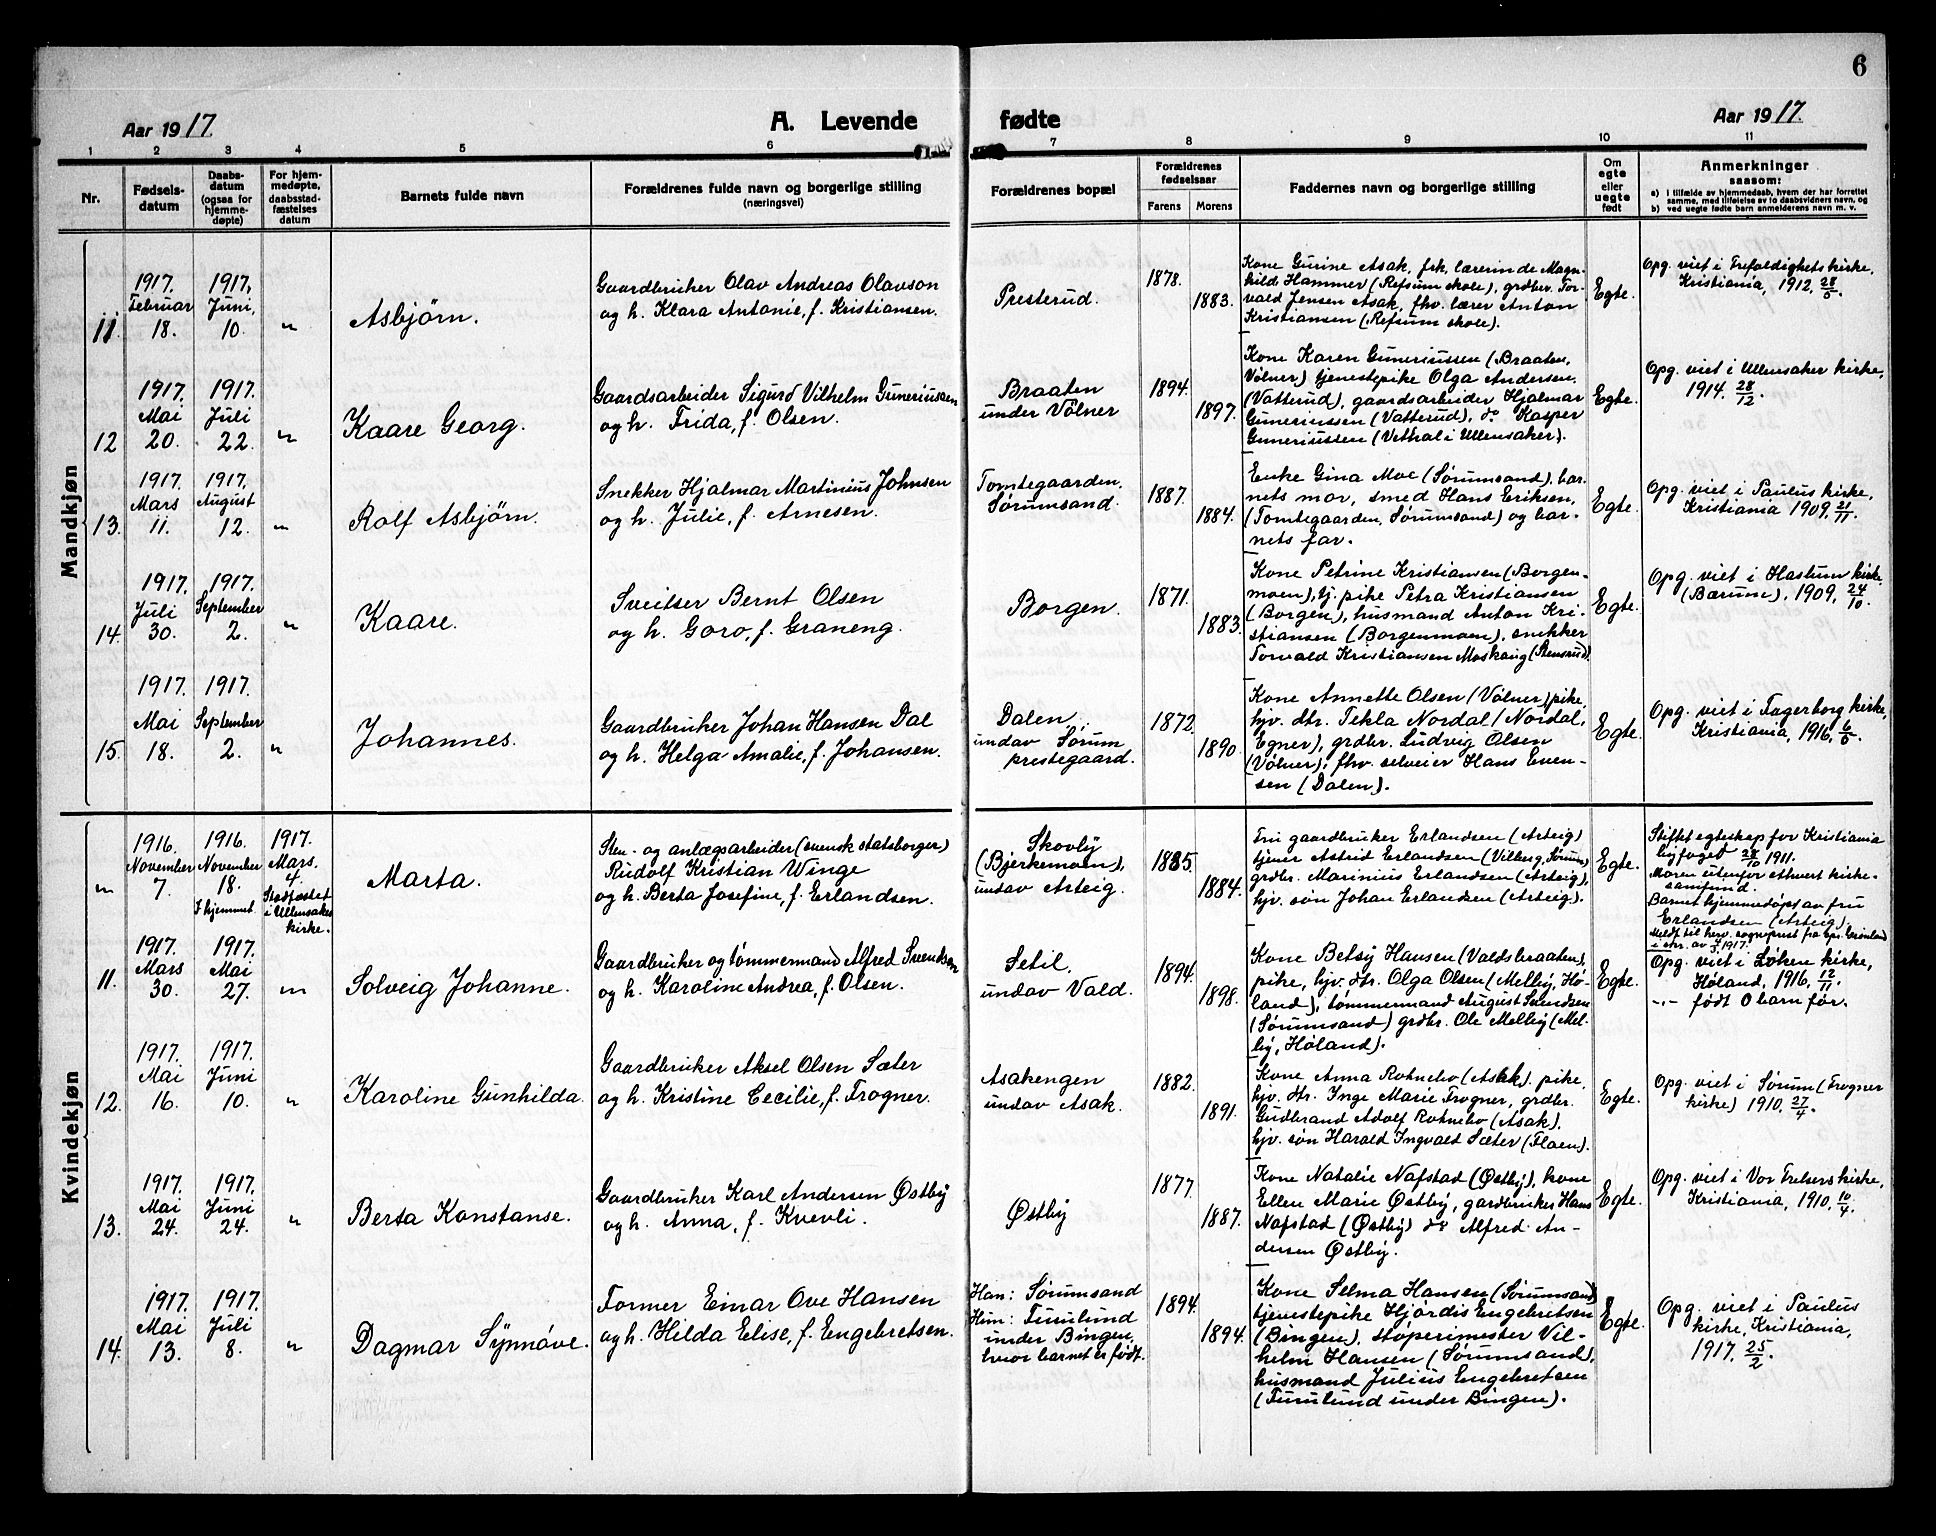 6
Aar 1917. A. Levende fødte Aar 1917.
1 2 3 4 5 6 7 8 9 10 11
Nr.
Fødsels-
datum
Daabs-
datum
(ogsaa for
hjemme-
døpte)
For hjem-
medøpte,
daabsstad-
fæstelses
datum
Barnets fulde navn
Forældrenes fulde navn og borgerlige stilling
(næringsvei)
Forældrenes bopæl
Forældrenes
fødselsaar
Farens Morens
Faddernes navn og borgerlige stilling
Om
egte
eller
uegte
født
Anmerkninger
saasom:
a) i tilfælde av hjemmedaab, hvem der har forrettet
samme, med tilføielse av to daabsvidners navn, og
b) ved uegte fødte barn anmelderens navn m. v.
Mandkjøn
11
1917.
Februar
18.
1917.
Juni,
10.
"
Asbjørn.
Gaardbruker Olav Andreas Olavson
og h. Klara Antonie, f. Kristiansen.
Presterud.
1878.
1883.
Kone Gurine Asak, frk. lærerinde Mag-
hild Hammer (Refsum skole), grdbr. Tor-
vald Jensen Asak, fhv. lærer Anton
Kristiansen (Refsum skole).
Egte.
Opg. viet i Trefoldighetskirke,
Kristiania, 1912, 28/5.
12
1917.
Mai
20.
1917.
Juli
22.
"
Kaare Georg.
Gaardsarbeider Sigurd Vilhelm Guneriussen
og h. Frida, f. Olsen.
Braaten
under Vølner
1894.
1897.
Kone Karen Guneriussen (Braaten,
Vølner) tjenestepike Olga Andersen,
(Vatterud), gaardsarbeider Hjalmar
Guneriussen (Vatterud), do Kasper
Guneriussen (Vethal i Ullensaker).
Egte.
Opg. viet i Ullensaker kirke,
1914. 28/12.
13.
1917.
Mars
11.
1917.
August
12.
"
Rolf Asbjørn.
Snekker Hjalmar Martinius Johnsen
og h. Julie, f. Arnesen.
Tomtegaarden.
Sørumsand.
1887.
1884.
Enke Gina Moe (Sørumsand), bar-
nets mor, smed Hans Eriksen,
(Tomtegaarden, Sørumsand) og bar-
nets far.
Egte.
Opg. viet i Paulus kirke,
Kristiania 1909, 21/11.
14.
1917.
Juli
30.
1917.
September
2.
"
Kaare.
Sveitser Bernt Olsen
og h. Goro, f. Graneng.
Borgen.
1871.
1883.
Kone Petrine Kristiansen (Borgen-
moen), tj. pike Petra Kristiansen
(Borgen), husmand Anton Kri-
stiansen (Borgenmoen), snekker
Torvald Kristiansen Moskaug (Stensrud).
Egte.
Opg. viet i Haslum kirke,
(Bærum), 1909, 24/10.
15.
1917.
Mai
18.
1917.
September
2.
"
Johannes.
Gaardbruker Johan Hansen Dal
og h. Helga Amalie, f. Johansen.
Dalen
undav Sørum
prestegaard.
1872.
1890.
Kone Annette Olsen (Vølner) pike,
hjv. dtr. Tekla Nordal (Nordal,
Egner), grdbr. Ludvig Olsen
(Vølner), fhv. selveier Hans Even-
sen (Dalen).
Egte.
Opg. viet i Fagerborg kirke,
Kristiania, 1916, 6/5.
Kvindekjøn
"
1916.
November
7.
1916.
November
18.
I hjemmet.
1917.
Mars.
4.
Stadfæstet
i Ullensaker
kirke.
Marta.
Sten- og anlægsarbeider (svensk statsborger)
Rudolf Kristian Winge
og h. Berta Josefine, f. Erlandsen.
Skovly
(Bjerkemoen),
undav Arteig.
1884.
Fru gaardbruker Erlandsen (Arteig)
tjener Astrid Erlandsen (Vilberg, Sørum)
grdbr. Marinius Erlandsen (Arteig),
hjv. søn Johan Erlandsen (Arteig).
Egte.
Stiftet egteskap for Kristiania
byfoged 28/10 1911.
Moren utenfor ethvert kirke-
samfund.
Barnet hjemmedøpt av fru
Erlandsen (Arteig).
Meldt til herv. sogneprest fra Spr. Grønland
i skr. av 4/3 1917.
11.
1917.
Mars
30.
1917.
Mai
27.
"
Solveig Johanne.
Gaardbruker og tømmermand Alfred Svendsen
og h. Karoline Andrea, f. Olsen.
Setil.
undav Vald.
1894.
1898.
Kone Betsy Hansen (Valdsbraaten),
pike, hjv. dtr. Olga Olsen (Melby, Hø-
land), tømmermand August Svendsen
(Sørumsand) grdbr. Ole Melby (Mel-
by, Høland).
Egte.
Opg. viet i Løken kirke,
Høland, 1916, 12/11.
-"- født 0 barn før.
12.
1917.
Mai
16.
1917.
Juni
10.
"
Karoline Gunhilda.
Gaardbruker Aksel Olsen Sæter
og h. Kristine Cecilie, f. Frogner.
Asakengen
undav Asak.
1882.
1891.
Kone Anna Rotnebo (Asak), pike,
hjv. dtr. Inge Marie Frogner, grdbr.
Gudbrand Adolf Rotnebo (Asak),
hjv. søn Harald Ingvald Sæter (Flaen).
Egte.
Opg. viet i Sørum (Frogner
kirke) 1910, 27/4.
13.
1917.
Mai
24.
1917.
Juni
24.
"
Berta Konstanse.
Gaardbruker Karl Andersen Østby
og h. Anna, f. Kvevli.
Østby
1877.
1887.
Kone Natalie Nafstad (Østby), kone
Ellen Marie Østby, gardbruker Hans
Nafstad (Østby) do Alfred An-
dersen Østby.
Egte.
Opg. viet i Vor Frelsers kirke,
Kristiania, 1910, 10/4.
14.
1917.
Mai
13.
1917.
Juli
8.
"
Dagmar Synnøve.
Former Einar Ove Hansen
og h. Hilda Elise, f. Engebretsen.
Han: Sørumsand
Hun: Furulund
under Bingen,
hvor barnet er født.
1894.
1894.
Kone Selma Hansen (Sørumsand)
tjenestepike Hjørdis Engebretsen
(Bingen), støperimester Vil-
helm Hansen (Sørumsand),
husmand Julius Engebretsen
(Furulund under Bingen).
Egte.
Opg. viet i Paulus
kirke, Kristiania,
1917, 25/2.